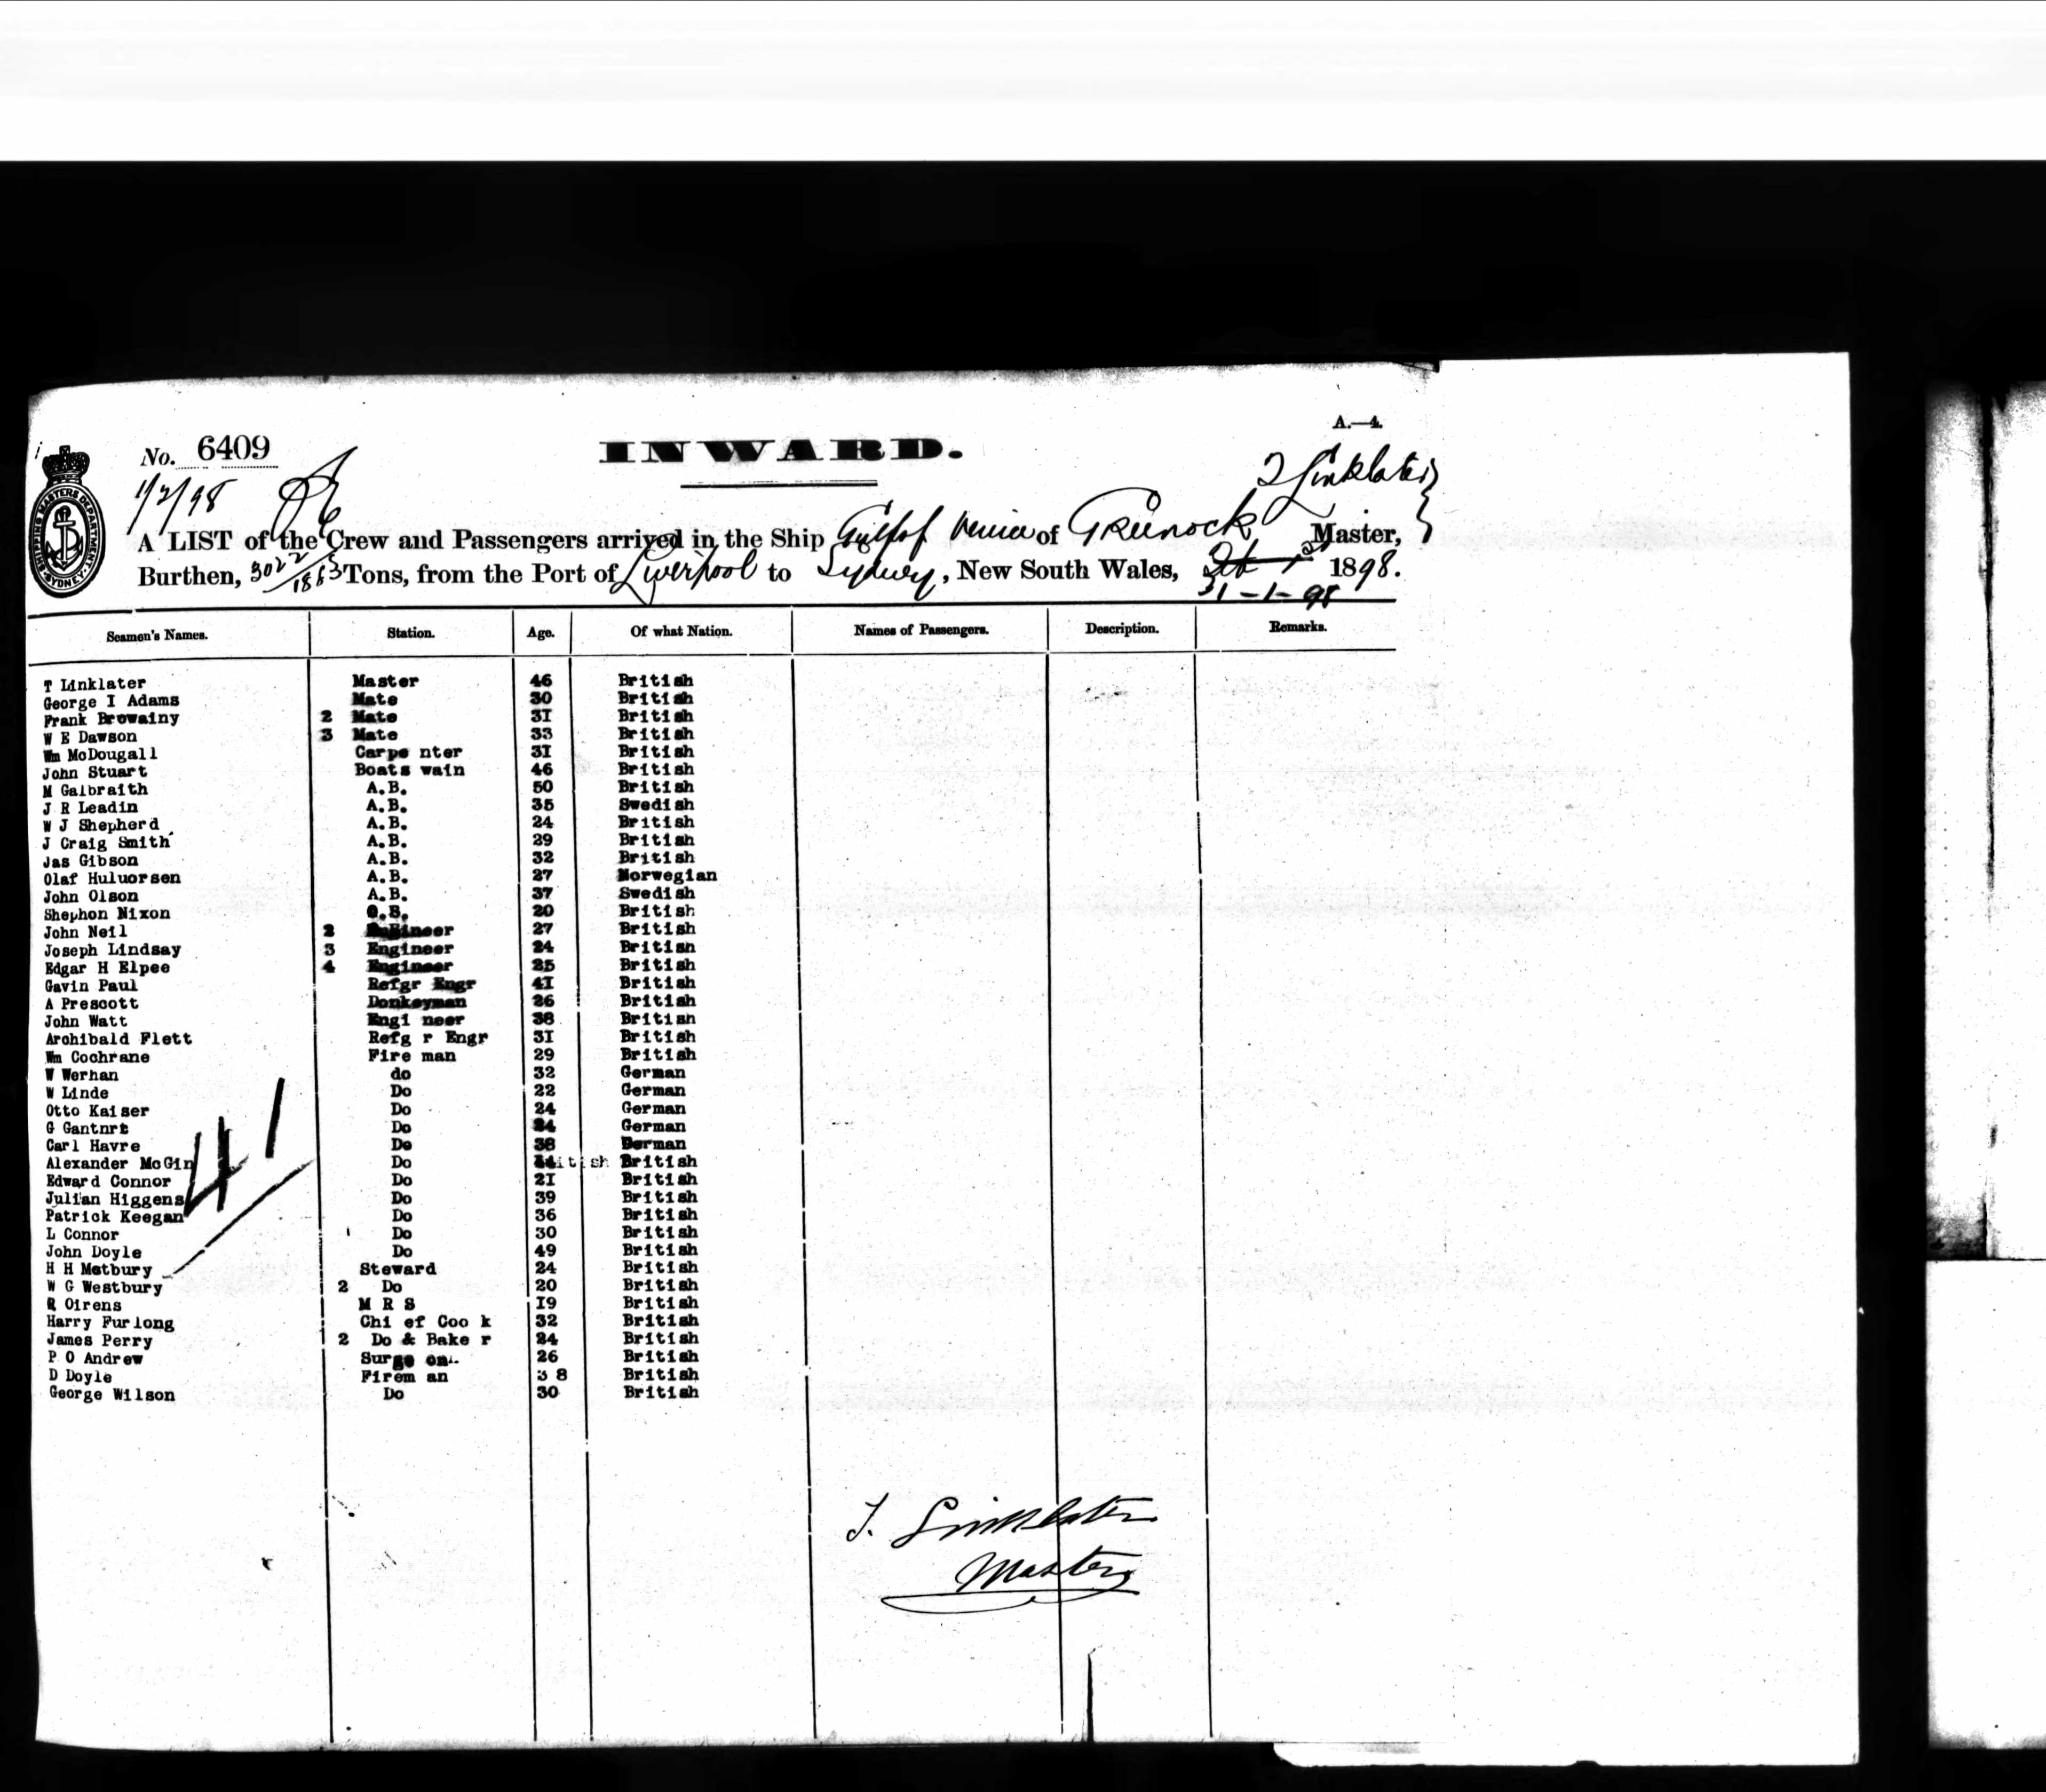 A.—4.
No. 6409
INWARD.
1/2/98
T Linklater
SHIPPING MASTERS DEPARTMENT. SYDNEY.
A LIST of the Crew and Passengers arrived in the Ship Gulf of Venice of Greenock Master,
Burthen, 3022/1863 Tons, from the Port of Liverpool to Sydney, New South Wales, 1898.
31-1-98
Seamen's Names. Station. Age. Of what Nation. Names of Passengers. Description. Remarks.
T Linklater Master 46 British
George I Adams Mate 30 British
Frank Browainy 2 Mate 3I British
W E Dawson 3 Mate 33 British
Wm McDougall Carpe nter 3I British
John Stuart Boats wain 46 British
M Galbraith A.B. 50 British
J R Leadin A.B. 35 Swedish
W J Shepherd A.B. 24 British
J Craig Smith A.B. 29 British
Jas Gibson A.B. 32 British
Olaf Huluorsen A.B. 27 Norwegian
John Olson A.B. 37 Swedish
Shephon Nixon O.S. 20 British
John Neil 2 Engineer 27 British
Joseph Lindsay 3 Engineer 24 British
Edgar H Elpee 4 Engineer 25 British
Gavin Paul Refgr Engr 4I British
A Prescott Donkeyman 26 British
John Watt Engi neer 38 British
Archibald Flett Refg r Engr 3I British
Wm Cochrane Fire man 29 British
W Werhan do 32 German
W Linde Do 22 German
Otto Kaiser Do 24 German
G Gantnrt Do 24 German
Carl Havre Do 38 German
Alexander McGin Do British
Edward Connor Do 2I British
Julian Higgens Do 39 British
Patrick Keegan Do 36 British
L Connor Do 30 British
John Doyle Do 49 British
H H Metbury Steward 24 British
W G Westbury 2 Do 20 British
R Oirens M R S I9 British
Harry Furlong Chi ef Coo k 32 British
James Perry 2 Do & Bake r 24 British
P O Andrew Surge on.. 26 British
D Doyle Firem an 3 8 British
George Wilson Do 30 British
41
T. Linklater
Master